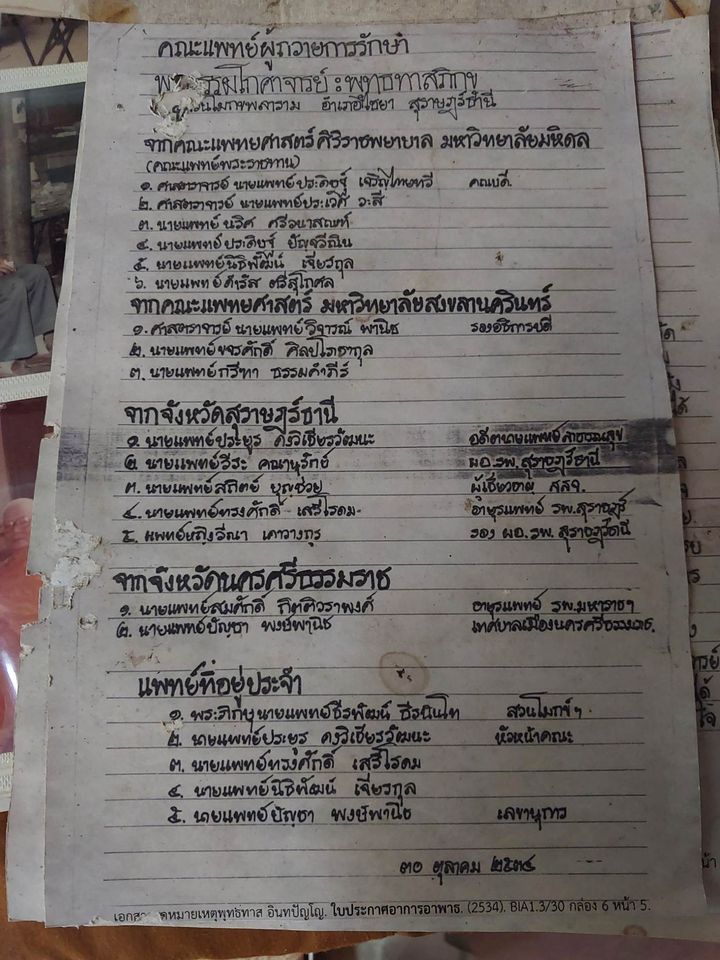 คณะแพทย์ผู้ถวายการรักษา
พระธรรมโกศาจารย์ : พุทธทาสภิกขุ
สวนโมกขพลาราม อำเภอไชยา สุราษฎร์ธานี
จากคณะแพทยศาสตร์ศิริราชพยาบาล มหาวิทยาลัยมหิดล
(คณะแพทย์พระราชทาน)
๑. ศาสตราจารย์ นายแพทย์ประดิษฐ์ เจริญไทยทวี คณบดี
๒. ศาสตราจารย์ นายแพทย์ประเวศ วะสี
๓. นายแพทย์นริศ
๔. นายแพทย์ประดิษฐ์ ปัญจวีณิน
๕. นายแพทย์นิธิพัฒน์ เจียรกุล
๖. นายแพทย์ดำรัส ตรีสุโกศล
จากคณะแพทยศาสตร์ มหาวิทยาลัยสงขลานครินทร์
๑. ศาสตราจารย์ นายแพทย์วิจารณ์ พานิช รองอธิการบดี
๒. นายแพทย์ขจรศักดิ์ ศิลปโภชากุล
๓. นายแพทย์กรีฑา ธรรมคำภีร์
จากจังหวัดสุราษฎร์ธานี
๑. นายแพทย์ประยูร คงวิเชียรวัฒนะ อดีตนายแพทย์สาธารณสุข
๒. นายแพทย์วีระ คณานุรักย์ ผอ.รพ.สุราษฎร์ธานี
๓. นายแพทย์สถิตย์ บุญช่วย ผู้เชี่ยวชาญ สสจ.
๔. นายแพทย์ทรงศักดิ์ เสรีโรดม อายุรแพทย์ รพ.สุราษฎร์
๕. แพทย์หญิงวีณา เคารางกูร รอง ผอ.รพ.สุราษฎร์ธานี
จากจังหวัดนครศรีธรรมราช
๑. นายแพทย์สมศักดิ์ กิตติวราพงศ์ อายุรแพทย์ รพ.มหาราชฯ
๒. นายแพทย์บัญชา พงษ์พานิช เทศบาลเมืองนครศรีธรรมราช.
แพทย์ที่อยู่ประจำ
๑. พระภิกษุนายแพทย์ธีรพัฒน์ ธีรนินโท สวนโมกข์ฯ
๒. นายแพทย์ประยูร คงวิเชียรวัฒนะ หัวหน้าคณะ
๓. นายแพทย์ทรงศักดิ์ เสรีโรดม
๔. นายแพทย์นิธิพัฒน์ เจียรกุล
๕. นายแพทย์บัญชา พงษ์พานิช เลขานุการ
๓๐ ตุลาคม ๒๕๓๔
ดหมายเหตุพุทธทาส อินทปัญโญ. ใบประกาศอาการอาพาธ. (2534). BIA1.3/30 กล่อง 6 หน้า 5.